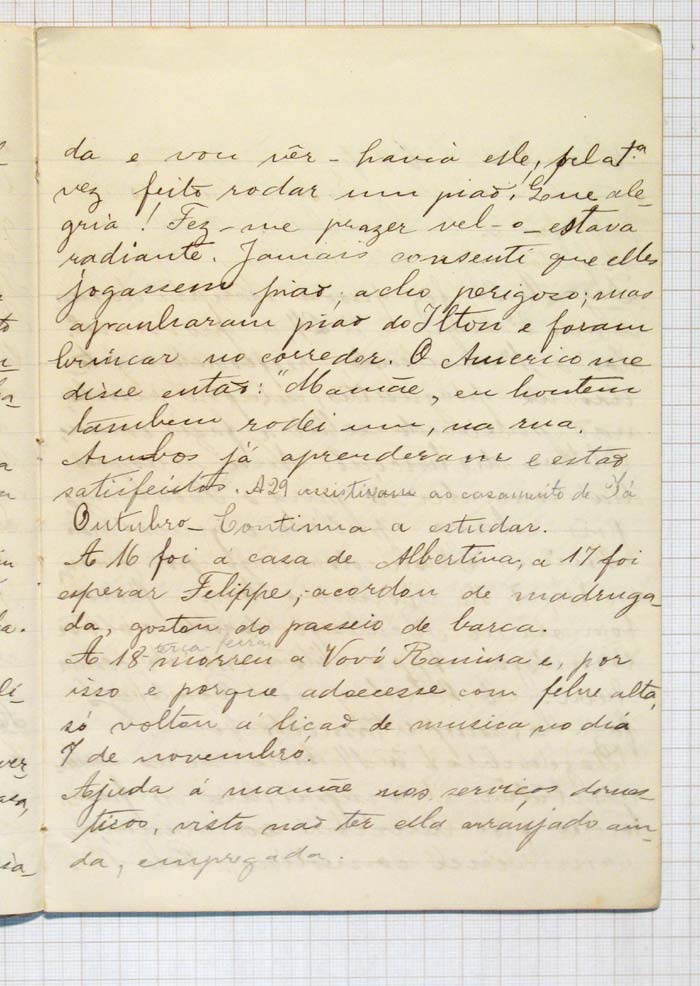 da e vou vêr – havia elle, pela 1.ª
vez feito rodar um pião! Que ale-
gria! Fez-me prazer vel-o – estava
radiante. Jamais consenti que elles
jogassem pião; acho perigoso; mas
apanharam pião do Ilton e foram
brincar no corredor. O Americo me
disse então: "Mamãe, eu hontem
tambem rodei um, na rua.
Ambos já aprenderam e estão
satisfeitos. A 29 assistiram ao casamento de Yá
Outubro – Continua a estudar.
A 16 foi á casa de Albertina, a 17 foi
esperar Felippe; acordou de madruga-
da, gostou do passeio de barca.
terça-feira
A 18 – morreu a Vovó Ramira e, por
isso e porque adoecesse com febre alta,
só voltou á lição de musica no dia
7 de novembro.
Ajuda á mamãe nos serviços domes-
ticos, visto não ter ella arranjado ain-
da, empregada.
to
n
la.
ver-
asa,
ia-